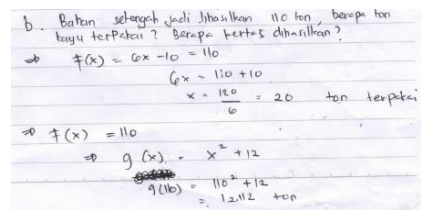 b. Bahan setengah jadi dihasilkan 110 ton, berapa ton
kayu terpakai? Berapa kertas dihasilkan?
⇒ f(x) = 6x - 10 = 110
6x = 110 + 10
x = 120/6 = 20 ton terpakai
⇒ f(x) = 110
⇒ g(x) = x² + 12
g(110) = 110² + 12
= 12.112 ton